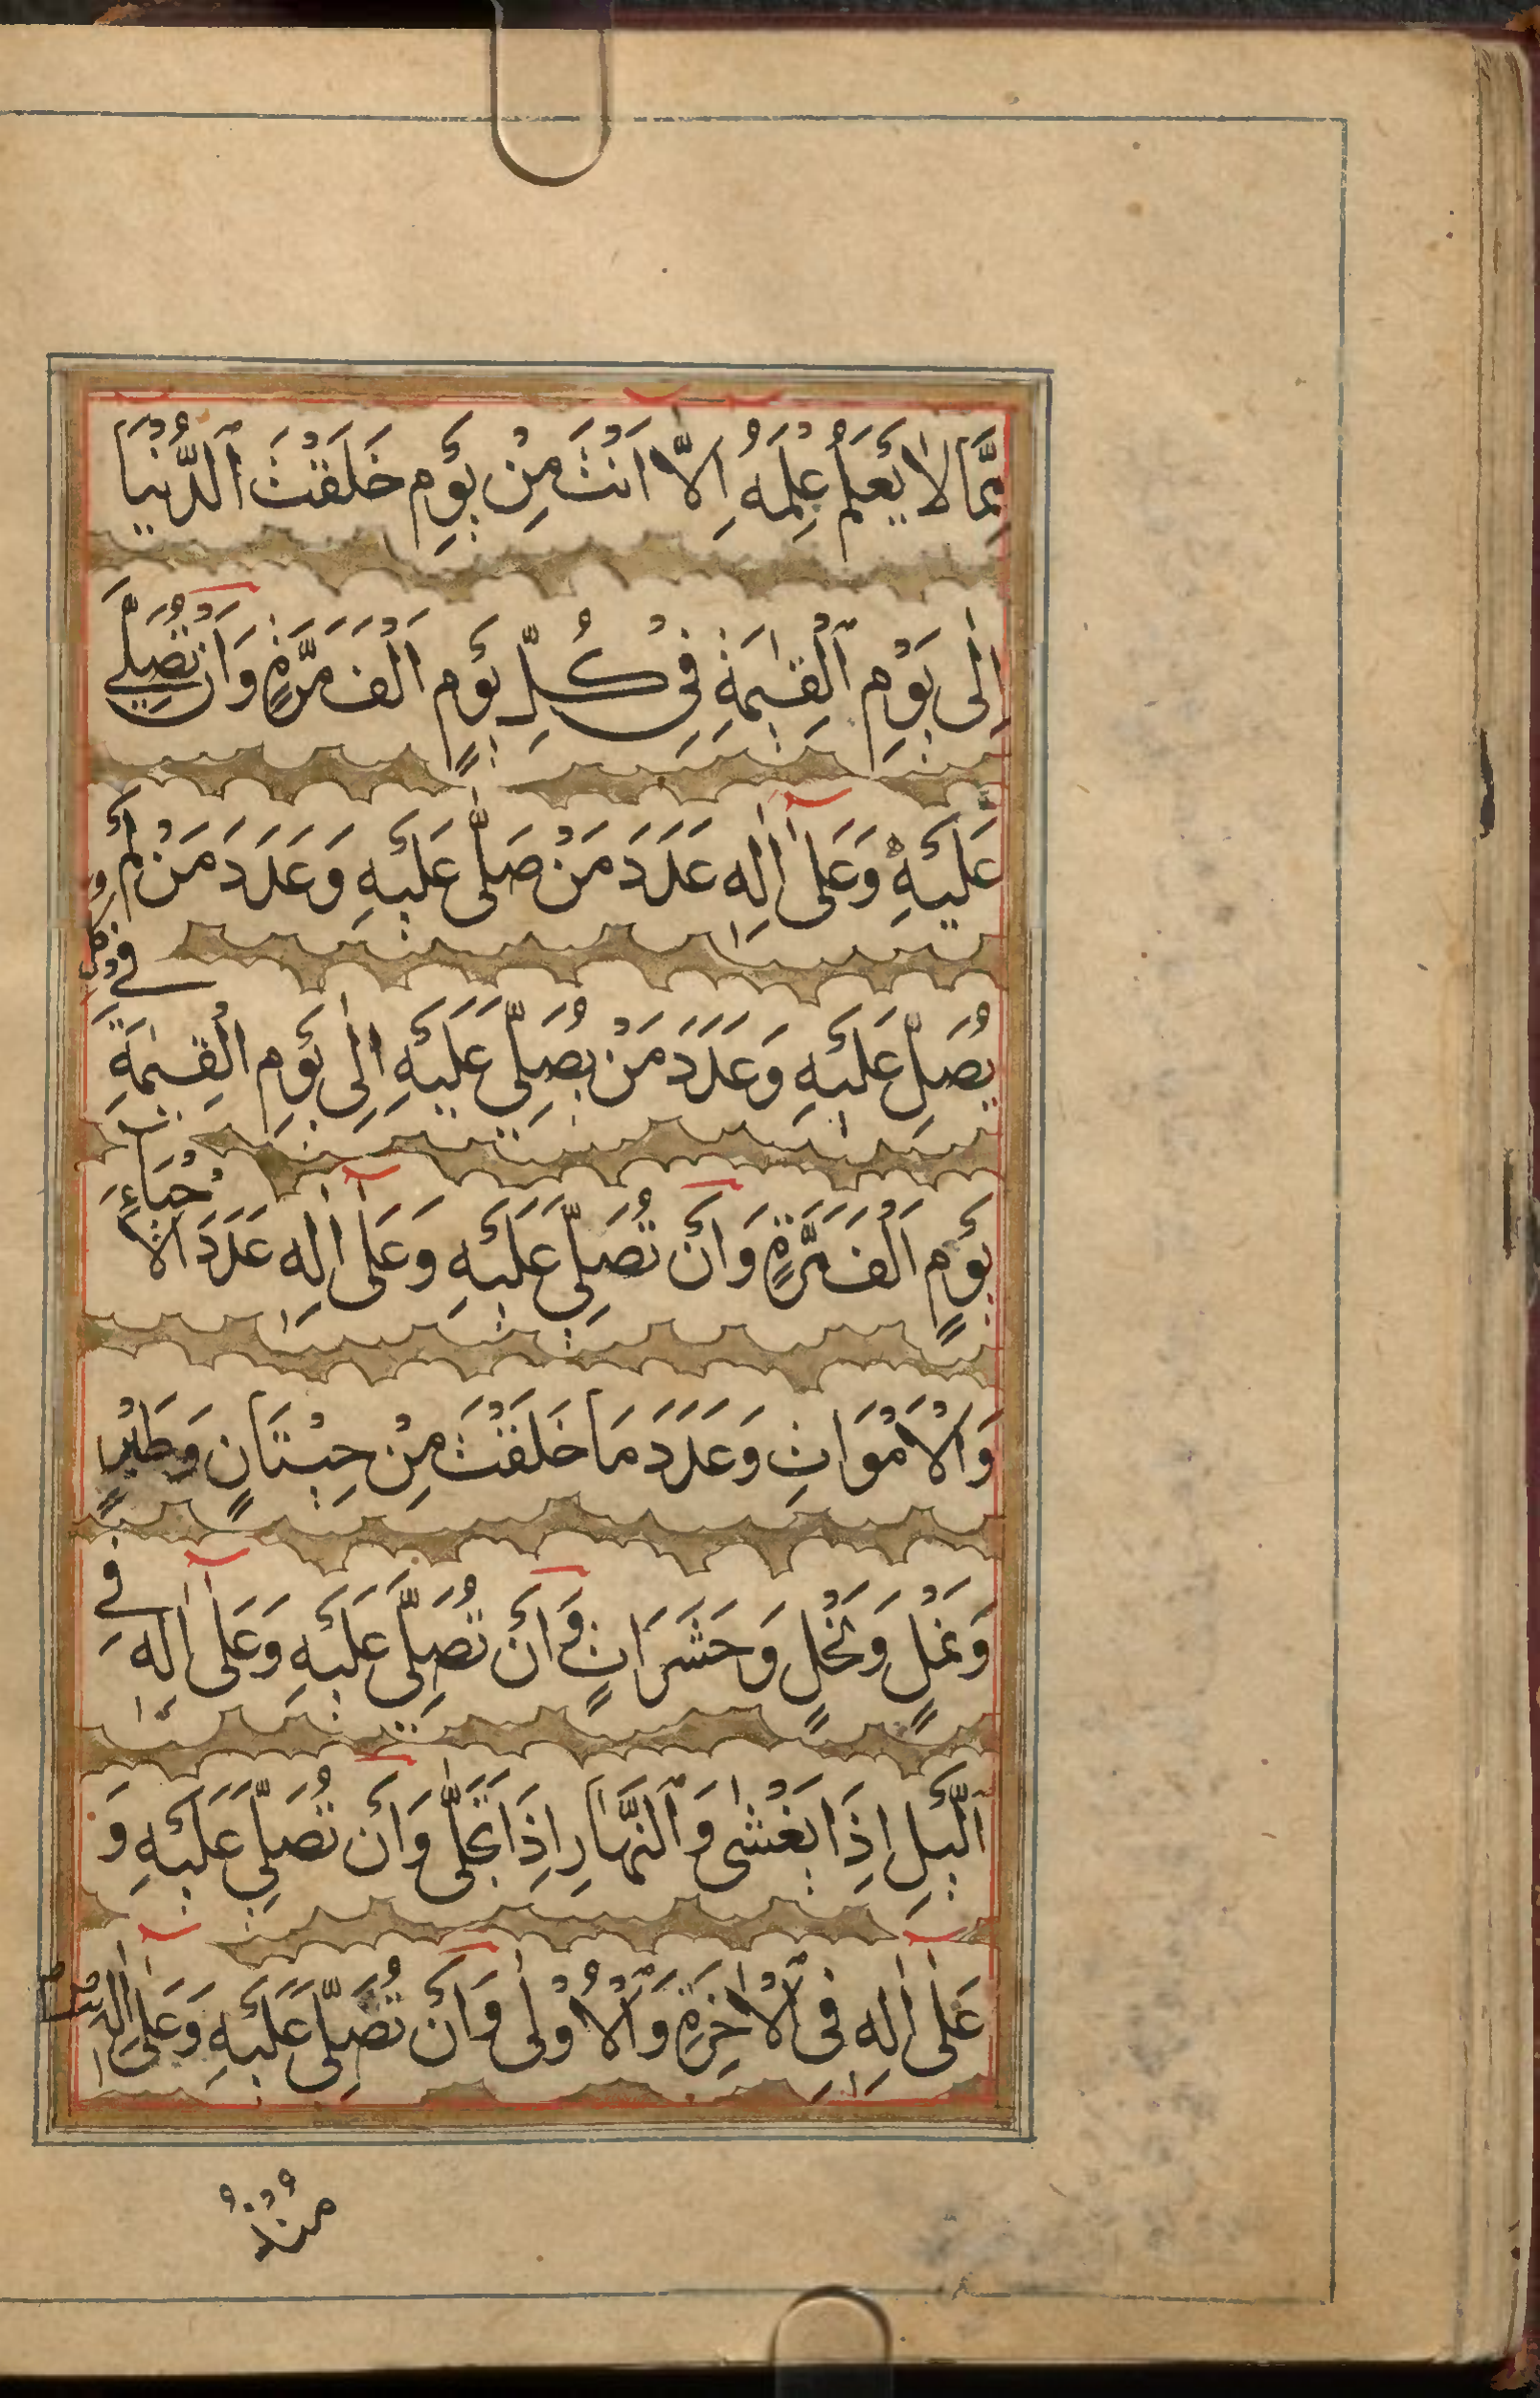 مِمَّا لَا يَعْلَمُ عِلْمَهُ اِلَّا اَنْتَ مِنْ يَوْمِ خَلَقْتَ الدُّنْيَا
اِلٰى يَوْمِ الْقِيٰمَةِ فِيْ كُلِّ يَوْمٍ اَلْفَ مَرَّةٍ وَاَنْ تُصَلِّيَ
عَلَيْهِ وَعَلٰى اٰلِهٖ عَدَدَ مَنْ صَلّٰى عَلَيْهِ وَعَدَدَ مَنْ لَمْ
يُصَلِّ عَلَيْهِ وَعَدَدَ مَنْ يُصَلِّيْ عَلَيْهِ اِلٰى يَوْمِ الْقِيٰمَةِ فِيْ كُلِّ
يَوْمٍ اَلْفَ مَرَّةٍ وَاَنْ تُصَلِّيَ عَلَيْهِ وَعَلٰى اٰلِهٖ عَدَدَ الْاَحْيَاءِ
وَالْاَمْوَاتِ وَعَدَدَ مَا خَلَقْتَ مِنْ حِيْتَانٍ وَطَيْرٍ
وَنَمْلٍ وَنَحْلٍ وَحَشَرَاتٍ وَاَنْ تُصَلِّيَ عَلَيْهِ وَعَلٰى اٰلِهٖ فِي
الَّيْلِ اِذَا يَغْشٰى وَالنَّهَارِ اِذَا تَجَلّٰى وَاَنْ تُصَلِّيَ عَلَيْهِ وَ
عَلٰى اٰلِهٖ فِي الْاٰخِرَةِ وَالْاُوْلٰى وَاَنْ تُصَلِّيَ عَلَيْهِ وَعَلٰى اٰلِهٖ
مُنْذُ